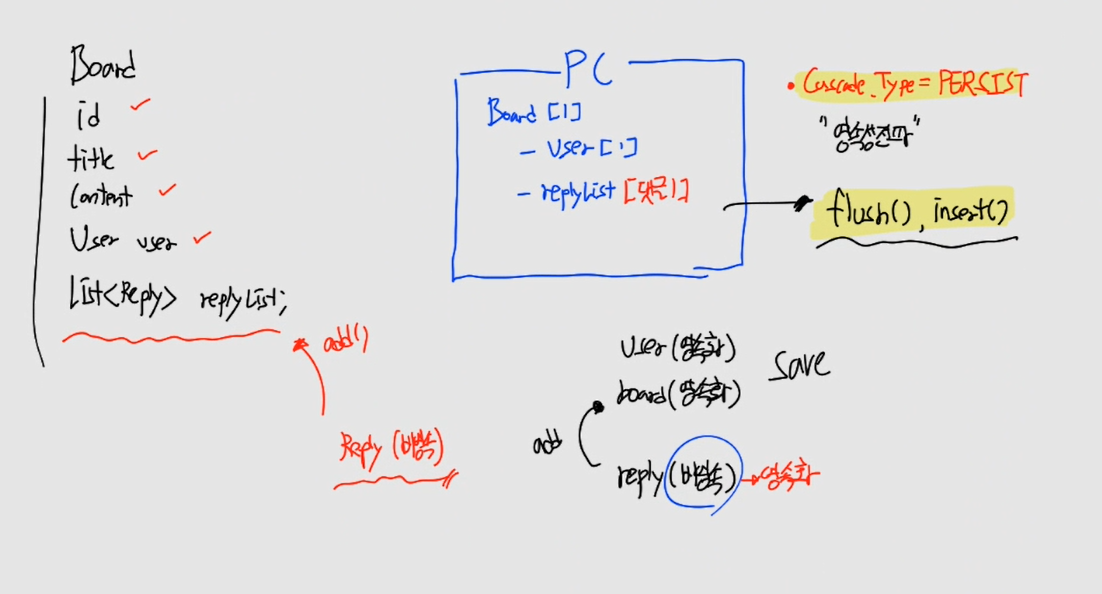 Board
id
title
Content
User user
List<Reply> replyList;
add()
Reply (비영속)
PC
Board [1]
- User [1]
- replyList [댓글1]
• Cascade.Type = PERSIST
"영속성전파"
flush(), insert()
User (영속화)
board (영속화)
save
add
reply (비영속) → 영속화